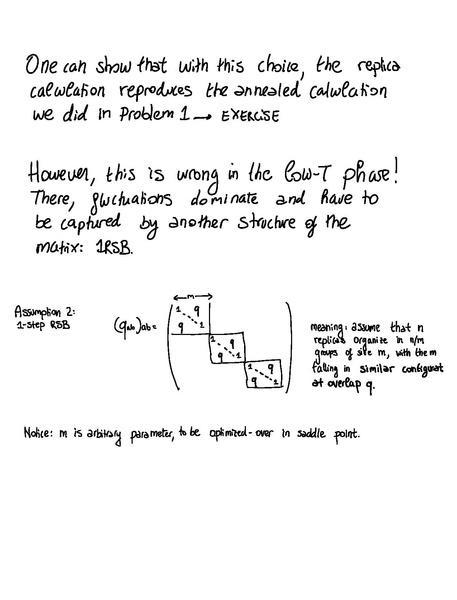 One can show that with this choice, the replica
calculation reproduces the annealed calculation
we did in Problem 1 → EXERCISE
However, this is wrong in the low-T phase!
There, fluctuations dominate and have to
be captured by another structure of the
matrix: 1RSB.
Assumption 2:
1-step RSB
(q_ab)_ab =
m
1 q
q 1
1 q
q 1
1 q
q 1
meaning: assume that n
replicas organize in n/m
groups of size m, with the m
falling in similar configurat
at overlap q.
Notice: m is arbitrary parameter, to be optimized-over in saddle point.